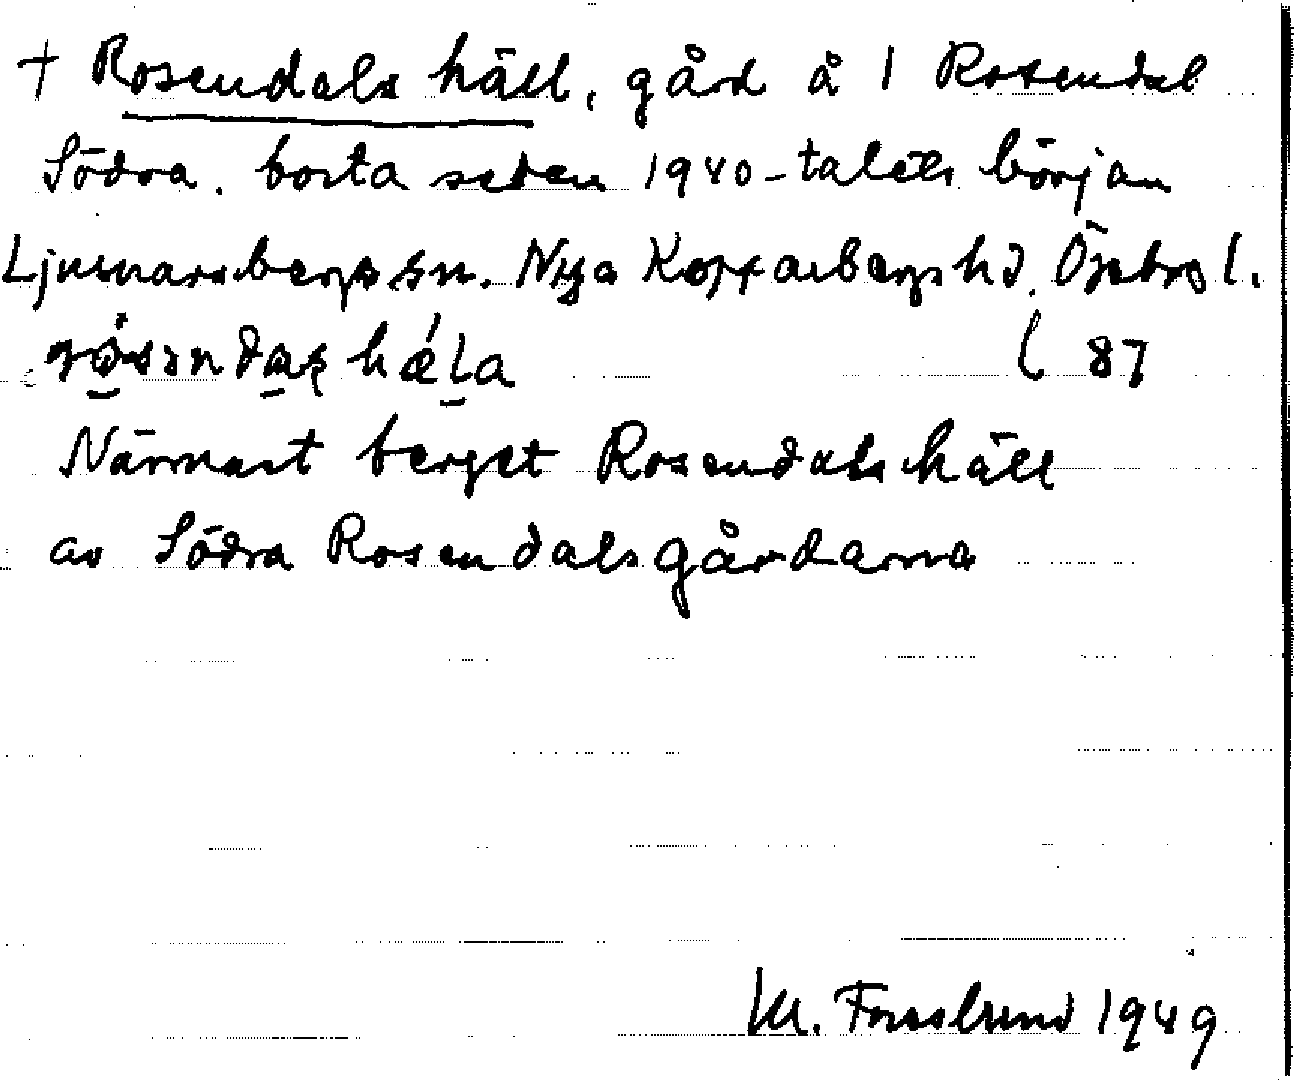 + Rosendals häll, gård å 1 Rosendal
Södra. borta sedan 1940-talets början
Ljusnarsbergs sn. Nya Kopparbergs hd. Örebro l.
( 87
Närmast berget Rosendals häll
av Södra Rosendalsgårdarna
M. Forsslund 1949